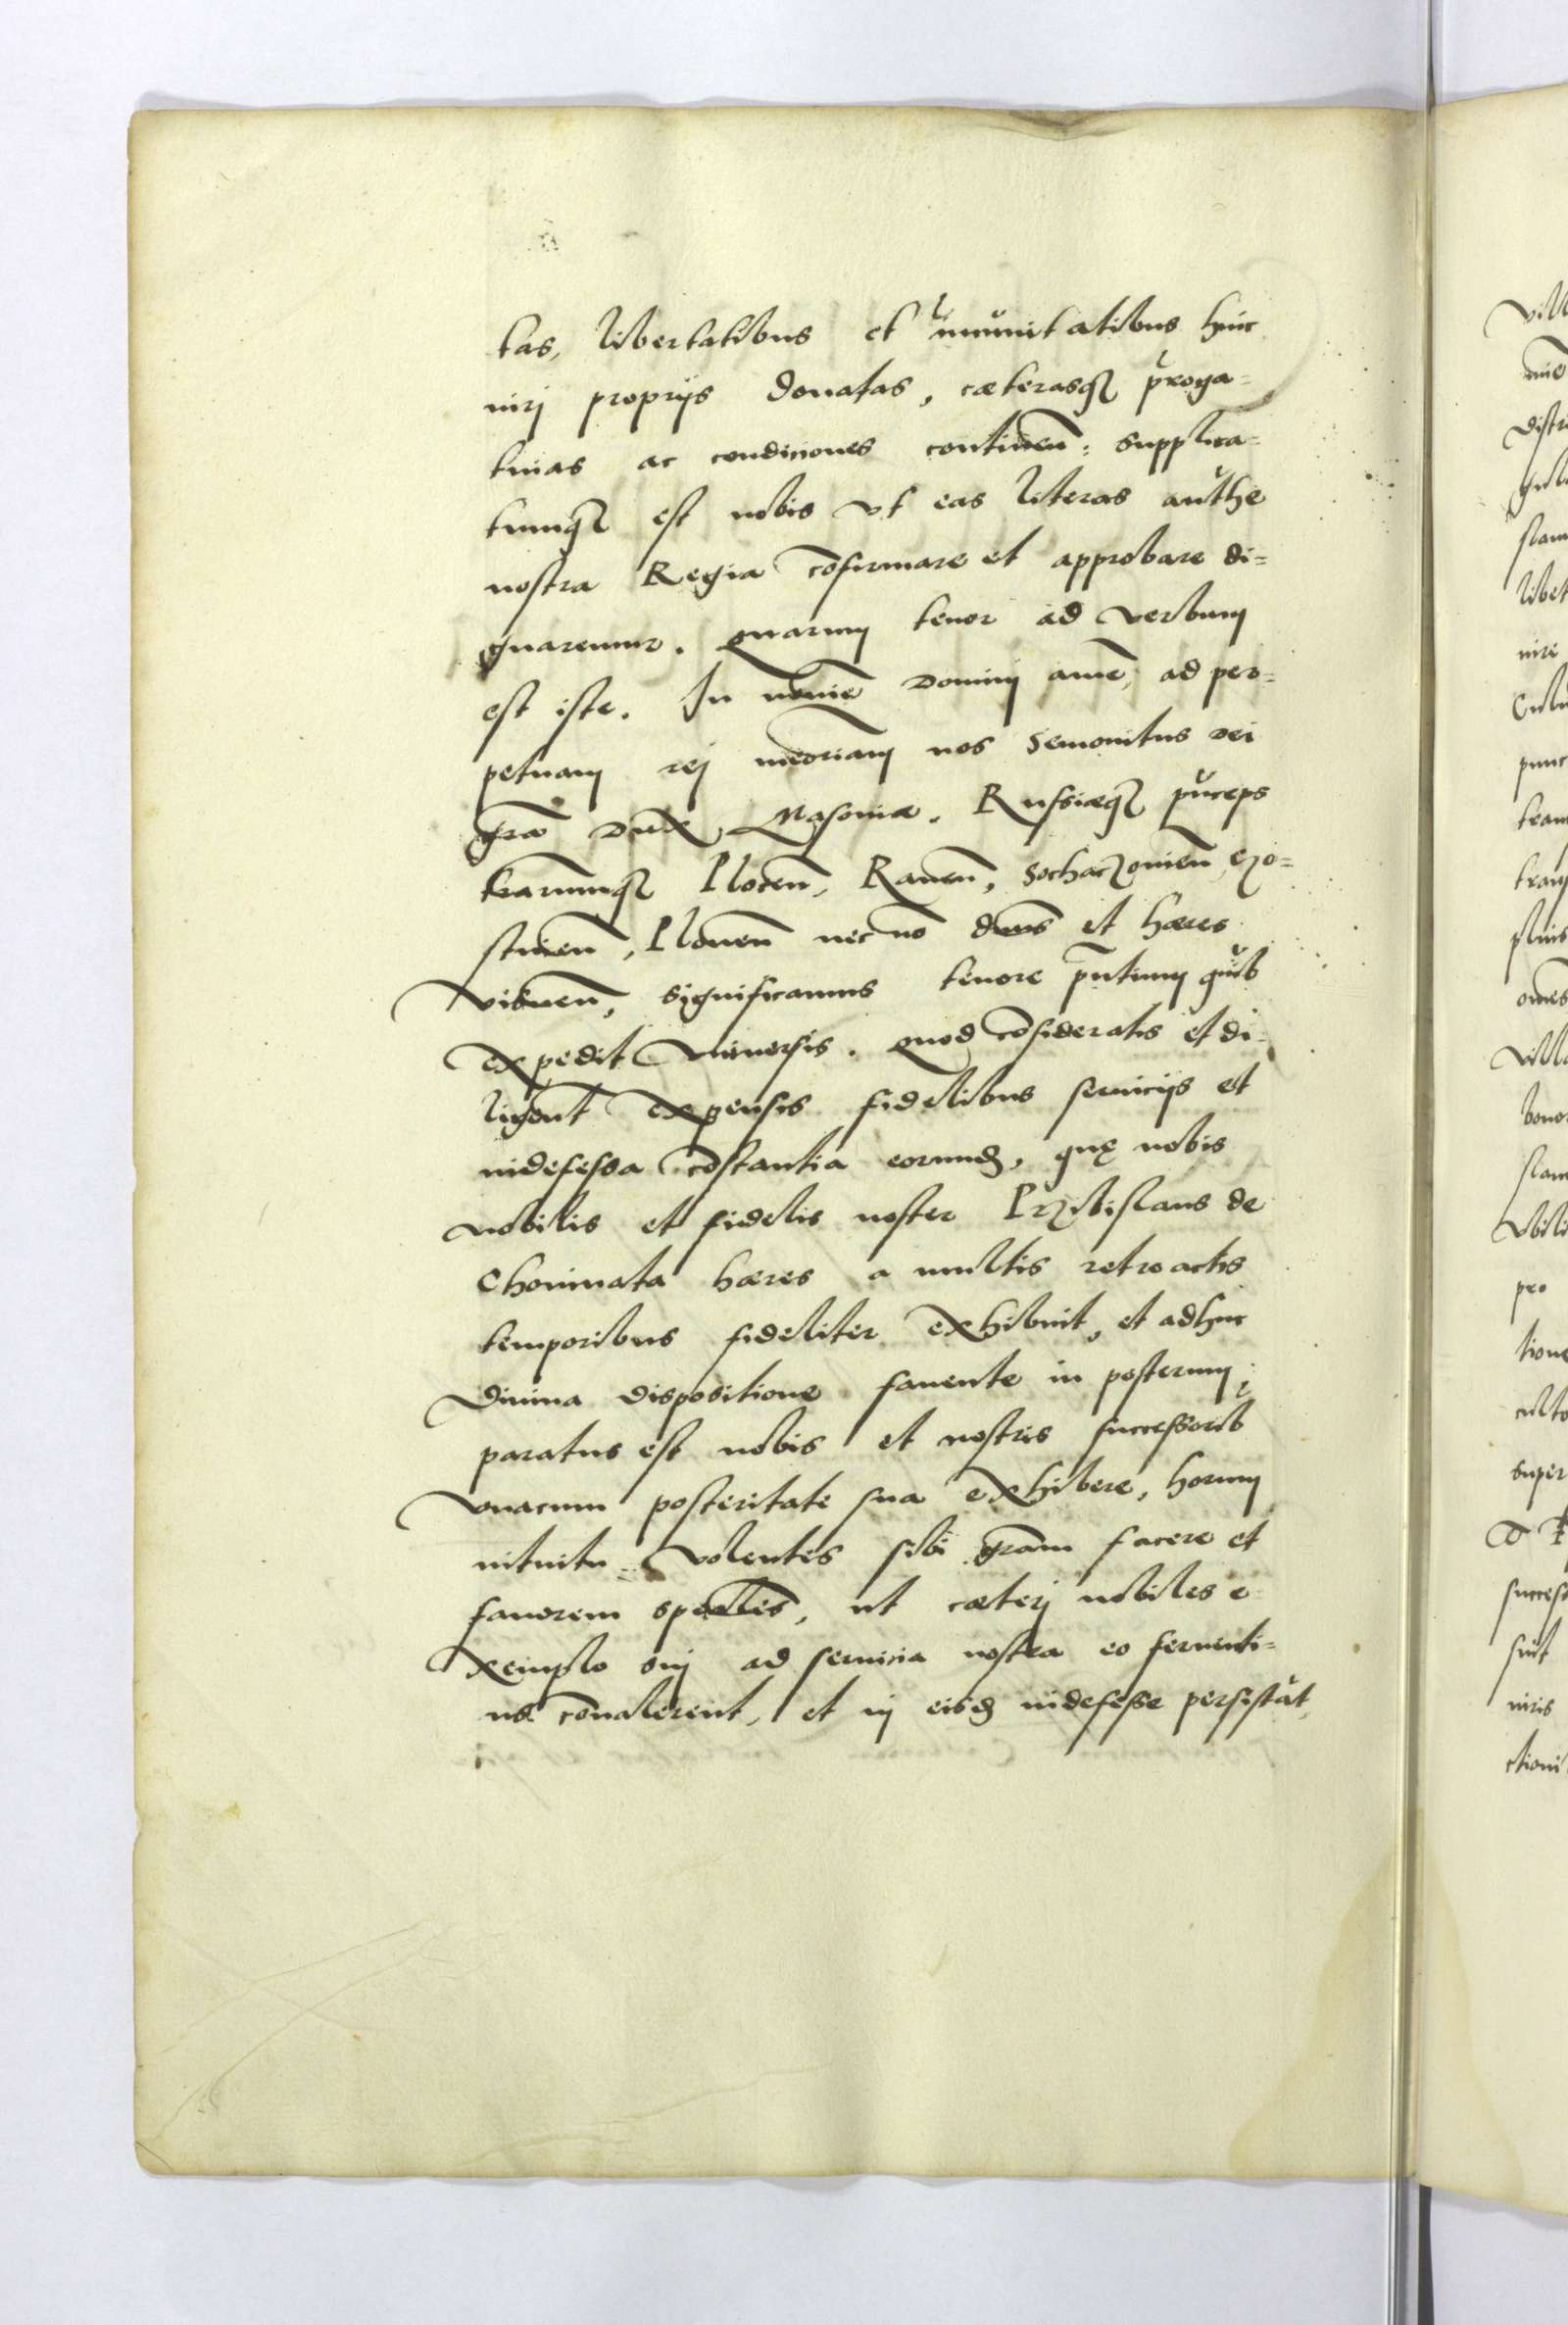 tas, libertatibus et imunitatibus huic
iurj proprijs donatas, cæterasqȝ proga=
tiuas ac condiciones continen̄: supplica=
tumqȝ est nobis vt eas literas authe
nostra Regia cōfirmare et approbare di=
gnaremur. quarum tenor ad verbum
est iste. In nom̄ie Dominj amē, ad per=
petuam rej memoriam nos Semouitus Dei
gr̄a Dux Masouiæ. Russiæqȝ prīceps
terarumqȝ Plocen̄, Rauen̄, Sochaczouien̄, Go=
stinen̄, Plonen̄ nec nō dn̄s et hæres
visnen̄, significamus tenore pn̄tium quib
expedit vniuersis. quod cōsideratis et di
ligent expensis fidelibus seruicijs et
indefessa cōstantia eorund, quę nobis
nobilis et fidelis noster Przibislaus de
Chomnata hæres a multis retroactis
temporibus fideliter exhibuit, et adhuc
Diuina dispositione fauente in posterum,
paratus est nobis et nostris successorib
vnacum posteritate sua exhibere, horum
intuitu volentes sibi gr̄am facere et
fauorem spēalēs, ut cæterj nobiles e
xemplo suj ad seruicia nostra eo feruenti=
us cōualerent, et in eisd indefesse persistāt